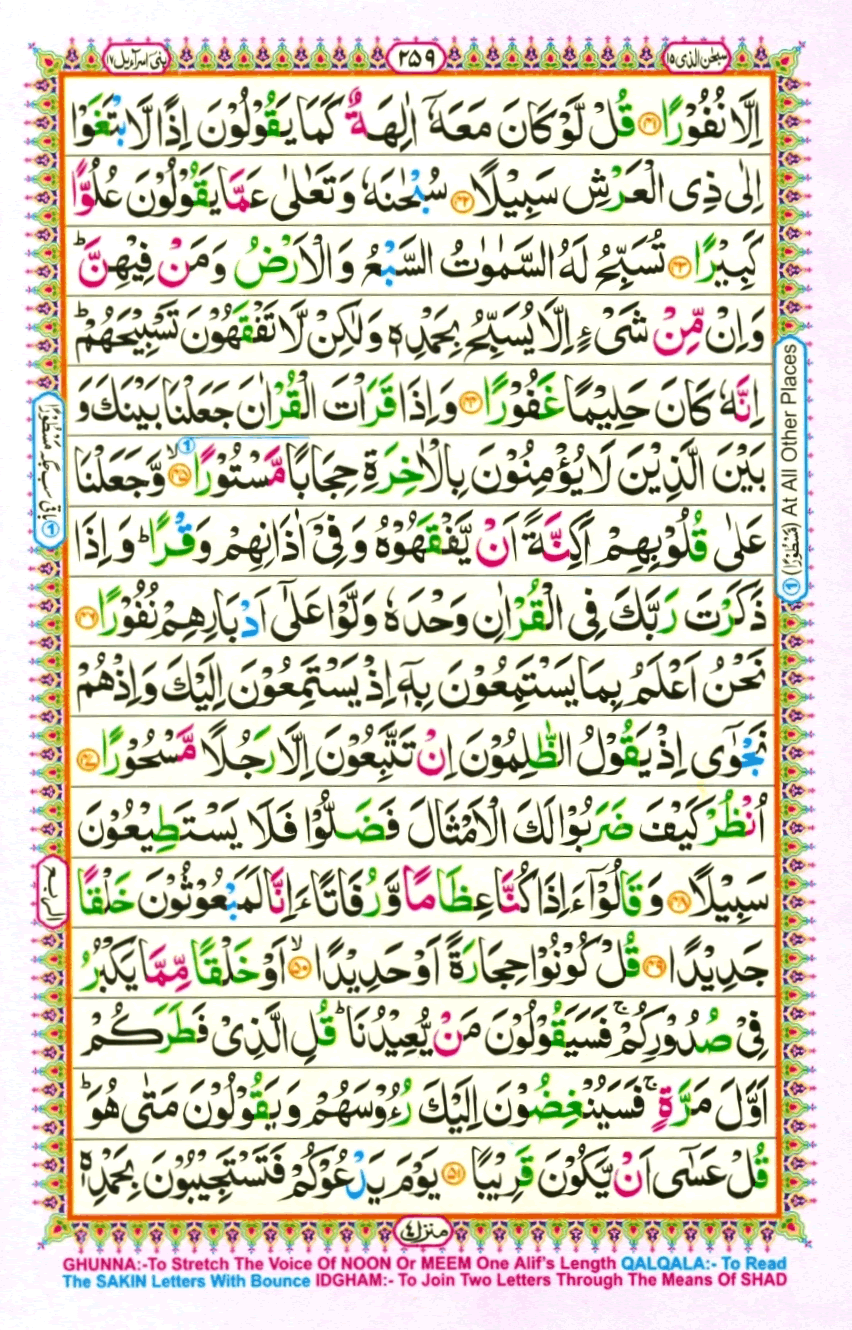 سبحٰن الذی ۱۵
۲۵۹
بنیٓ اسرآءیل ۱۷
اِلَّا نُفُوْرًا ۴۱ قُلْ لَّوْ كَانَ مَعَهٗۤ اٰلِهَةٌ كَمَا یَقُوْلُوْنَ اِذًا لَّابْتَغَوْا
اِلٰى ذِی الْعَرْشِ سَبِیْلًا ۴۲ سُبْحٰنَهٗ وَ تَعٰلٰى عَمَّا یَقُوْلُوْنَ عُلُوًّا
كَبِیْرًا ۴۳ تُسَبِّحُ لَهُ السَّمٰوٰتُ السَّبْعُ وَ الْاَرْضُ وَ مَنْ فِیْهِنَّ ؕ
وَ اِنْ مِّنْ شَیْءٍ اِلَّا یُسَبِّحُ بِحَمْدِهٖ وَ لٰكِنْ لَّا تَفْقَهُوْنَ تَسْبِیْحَهُمْ ؕ
اِنَّهٗ كَانَ حَلِیْمًا غَفُوْرًا ۴۴ وَ اِذَا قَرَاْتَ الْقُرْاٰنَ جَعَلْنَا بَیْنَكَ وَ
بَیْنَ الَّذِیْنَ لَا یُؤْمِنُوْنَ بِالْاٰخِرَةِ حِجَابًا مَّسْتُوْرًا ۙ۱ ۴۵ وَّ جَعَلْنَا
عَلٰى قُلُوْبِهِمْ اَكِنَّةً اَنْ یَّفْقَهُوْهُ وَ فِیْۤ اٰذَانِهِمْ وَقْرًا ؕ وَ اِذَا
ذَكَرْتَ رَبَّكَ فِی الْقُرْاٰنِ وَحْدَهٗ وَلَّوْا عَلٰۤى اَدْبَارِهِمْ نُفُوْرًا ۴۶
نَحْنُ اَعْلَمُ بِمَا یَسْتَمِعُوْنَ بِهٖۤ اِذْ یَسْتَمِعُوْنَ اِلَیْكَ وَ اِذْ هُمْ
نَجْوٰۤى اِذْ یَقُوْلُ الظّٰلِمُوْنَ اِنْ تَتَّبِعُوْنَ اِلَّا رَجُلًا مَّسْحُوْرًا ۴۷
اُنْظُرْ كَیْفَ ضَرَبُوْا لَكَ الْاَمْثَالَ فَضَلُّوْا فَلَا یَسْتَطِیْعُوْنَ
سَبِیْلًا ۴۸ وَ قَالُوْۤا ءَاِذَا كُنَّا عِظَامًا وَّ رُفَاتًا ءَاِنَّا لَمَبْعُوْثُوْنَ خَلْقًا
جَدِیْدًا ۴۹ قُلْ كُوْنُوْا حِجَارَةً اَوْ حَدِیْدًا ۙ ۵۰ اَوْ خَلْقًا مِّمَّا یَكْبُرُ
فِیْ صُدُوْرِكُمْ ۚ فَسَیَقُوْلُوْنَ مَنْ یُّعِیْدُنَا ؕ قُلِ الَّذِیْ فَطَرَكُمْ
اَوَّلَ مَرَّةٍ ۚ فَسَیُنْغِضُوْنَ اِلَیْكَ رُءُوْسَهُمْ وَ یَقُوْلُوْنَ مَتٰى هُوَ ؕ
قُلْ عَسٰۤى اَنْ یَّكُوْنَ قَرِیْبًا ۵۱ یَوْمَ یَدْعُوْكُمْ فَتَسْتَجِیْبُوْنَ بِحَمْدِهٖ
۱ (مَنْظُوْرًا) At All Other Places
الربع
منزل ۴
GHUNNA:-To Stretch The Voice Of NOON Or MEEM One Alif's Length QALQALA:- To Read
The SAKIN Letters With Bounce IDGHAM:- To Join Two Letters Through The Means Of SHAD